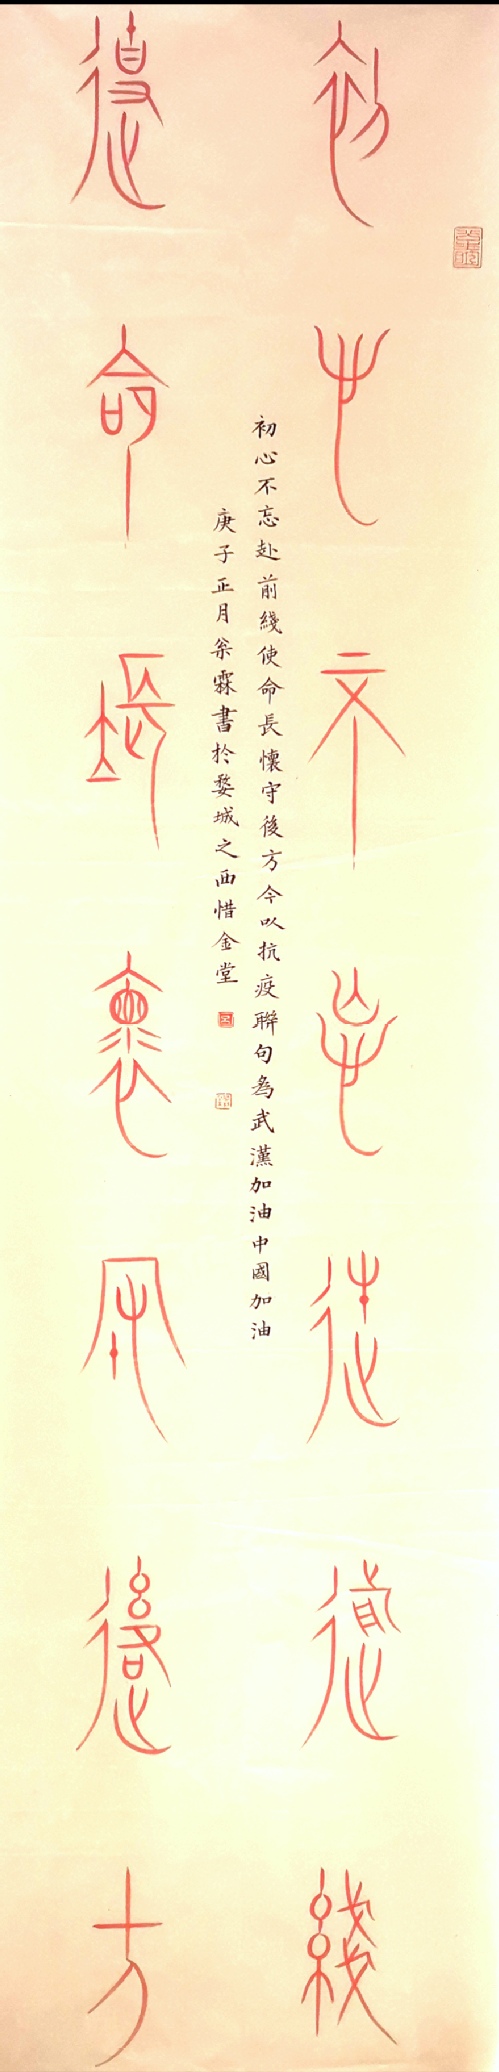 初心不忘赴前綫
使命長懷守後方
初心不忘赴前綫使命長懷守後方今以抗疫聯句為武漢加油中國加油
庚子正月棻霖書於婺城之西惜金堂